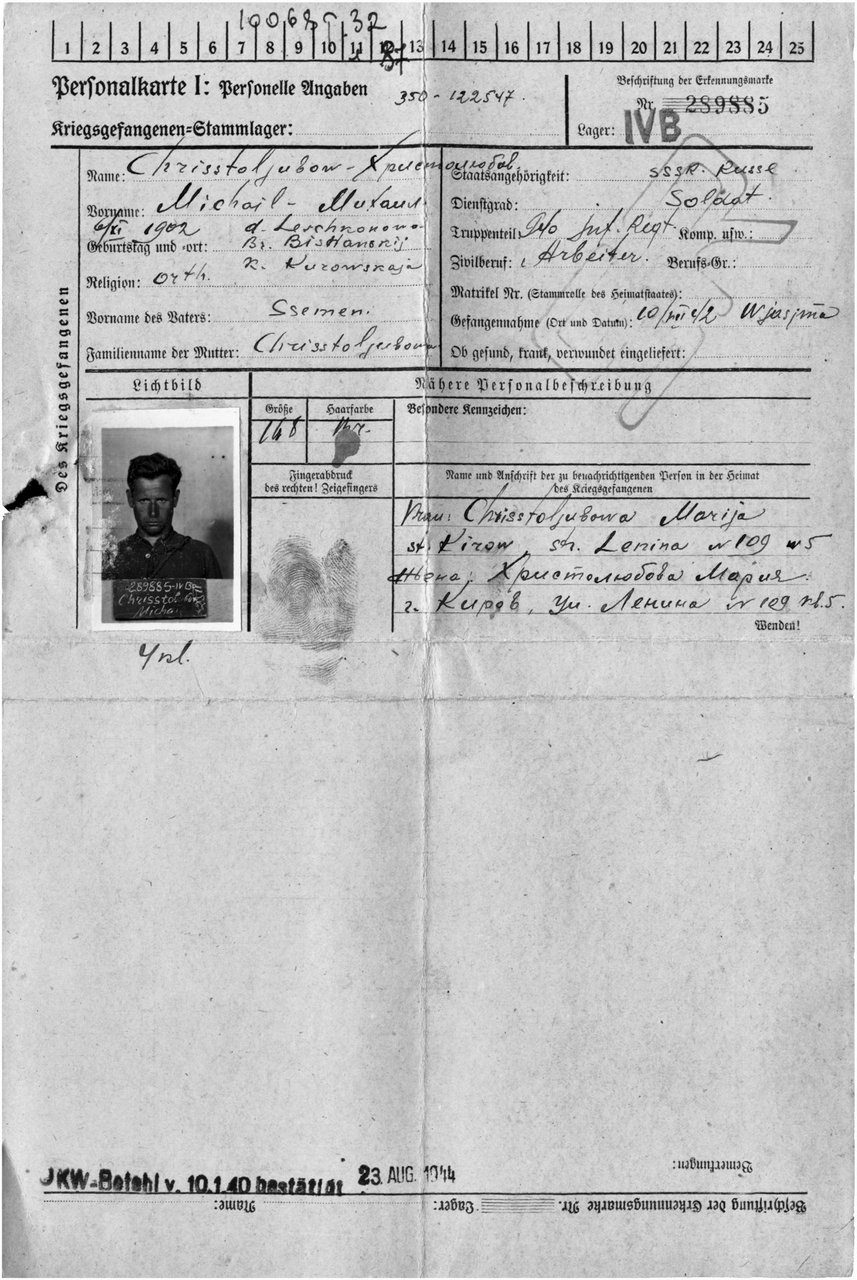 100685 32
1 2 3 4 5 6 7 8 9 10 11 12 13 14 15 16 17 18 19 20 21 22 23 24 25
Personalkarte I: Personelle Angaben
350-122547.
Beschriftung der Erkennungsmarke
Nr. 289885
Kriegsgefangenen-Stammlager:
Lager: IVB
Des Kriegsgefangenen
Name: Chrisstoljubow - Христолюбов.
Vorname: Michail - Михаил
6/XI 1902 d. Leschkonowo
Geburtstag und -ort: Br. Bisttanskij
R. Kurowskaja
Religion: orth.
Vorname des Vaters: Ssemen.
Familienname der Mutter: Chrisstoljubowa
Staatsangehörigkeit: SSSR. Russe
Dienstgrad: Soldat.
Truppenteil: Inf. Regt. Komp. usw.:
Zivilberuf: Arbeiter. Berufs-Gr.:
Matrikel Nr. (Stammrolle des Heimatstaates):
Gefangennahme (Ort und Datum): 10/VII 42 Wjasjma
Ob gesund, krank, verwundet eingeliefert:
Lichtbild
Nähere Personalbeschreibung
Größe Haarfarbe Besondere Kennzeichen:
168
Fingerabdruck
des rechten! Zeigefingers
Name und Anschrift der zu benachrichtigenden Person in der Heimat
des Kriegsgefangenen
Frau: Chrisstoljubowa Marija
st. Kirow, str. Lenina N 109 w 5
Жена: Христолюбова Мария
г. Киров, ул. Ленина N 109 кв. 5.
Wenden!
289885-IVB
Chrisstol
Micha
Bemerkungen:
OKW-Befehl v. 10.1.40 bestätigt
23. AUG. 1944
Name: Lager: Beschriftung der Erkennungsmarke Nr.